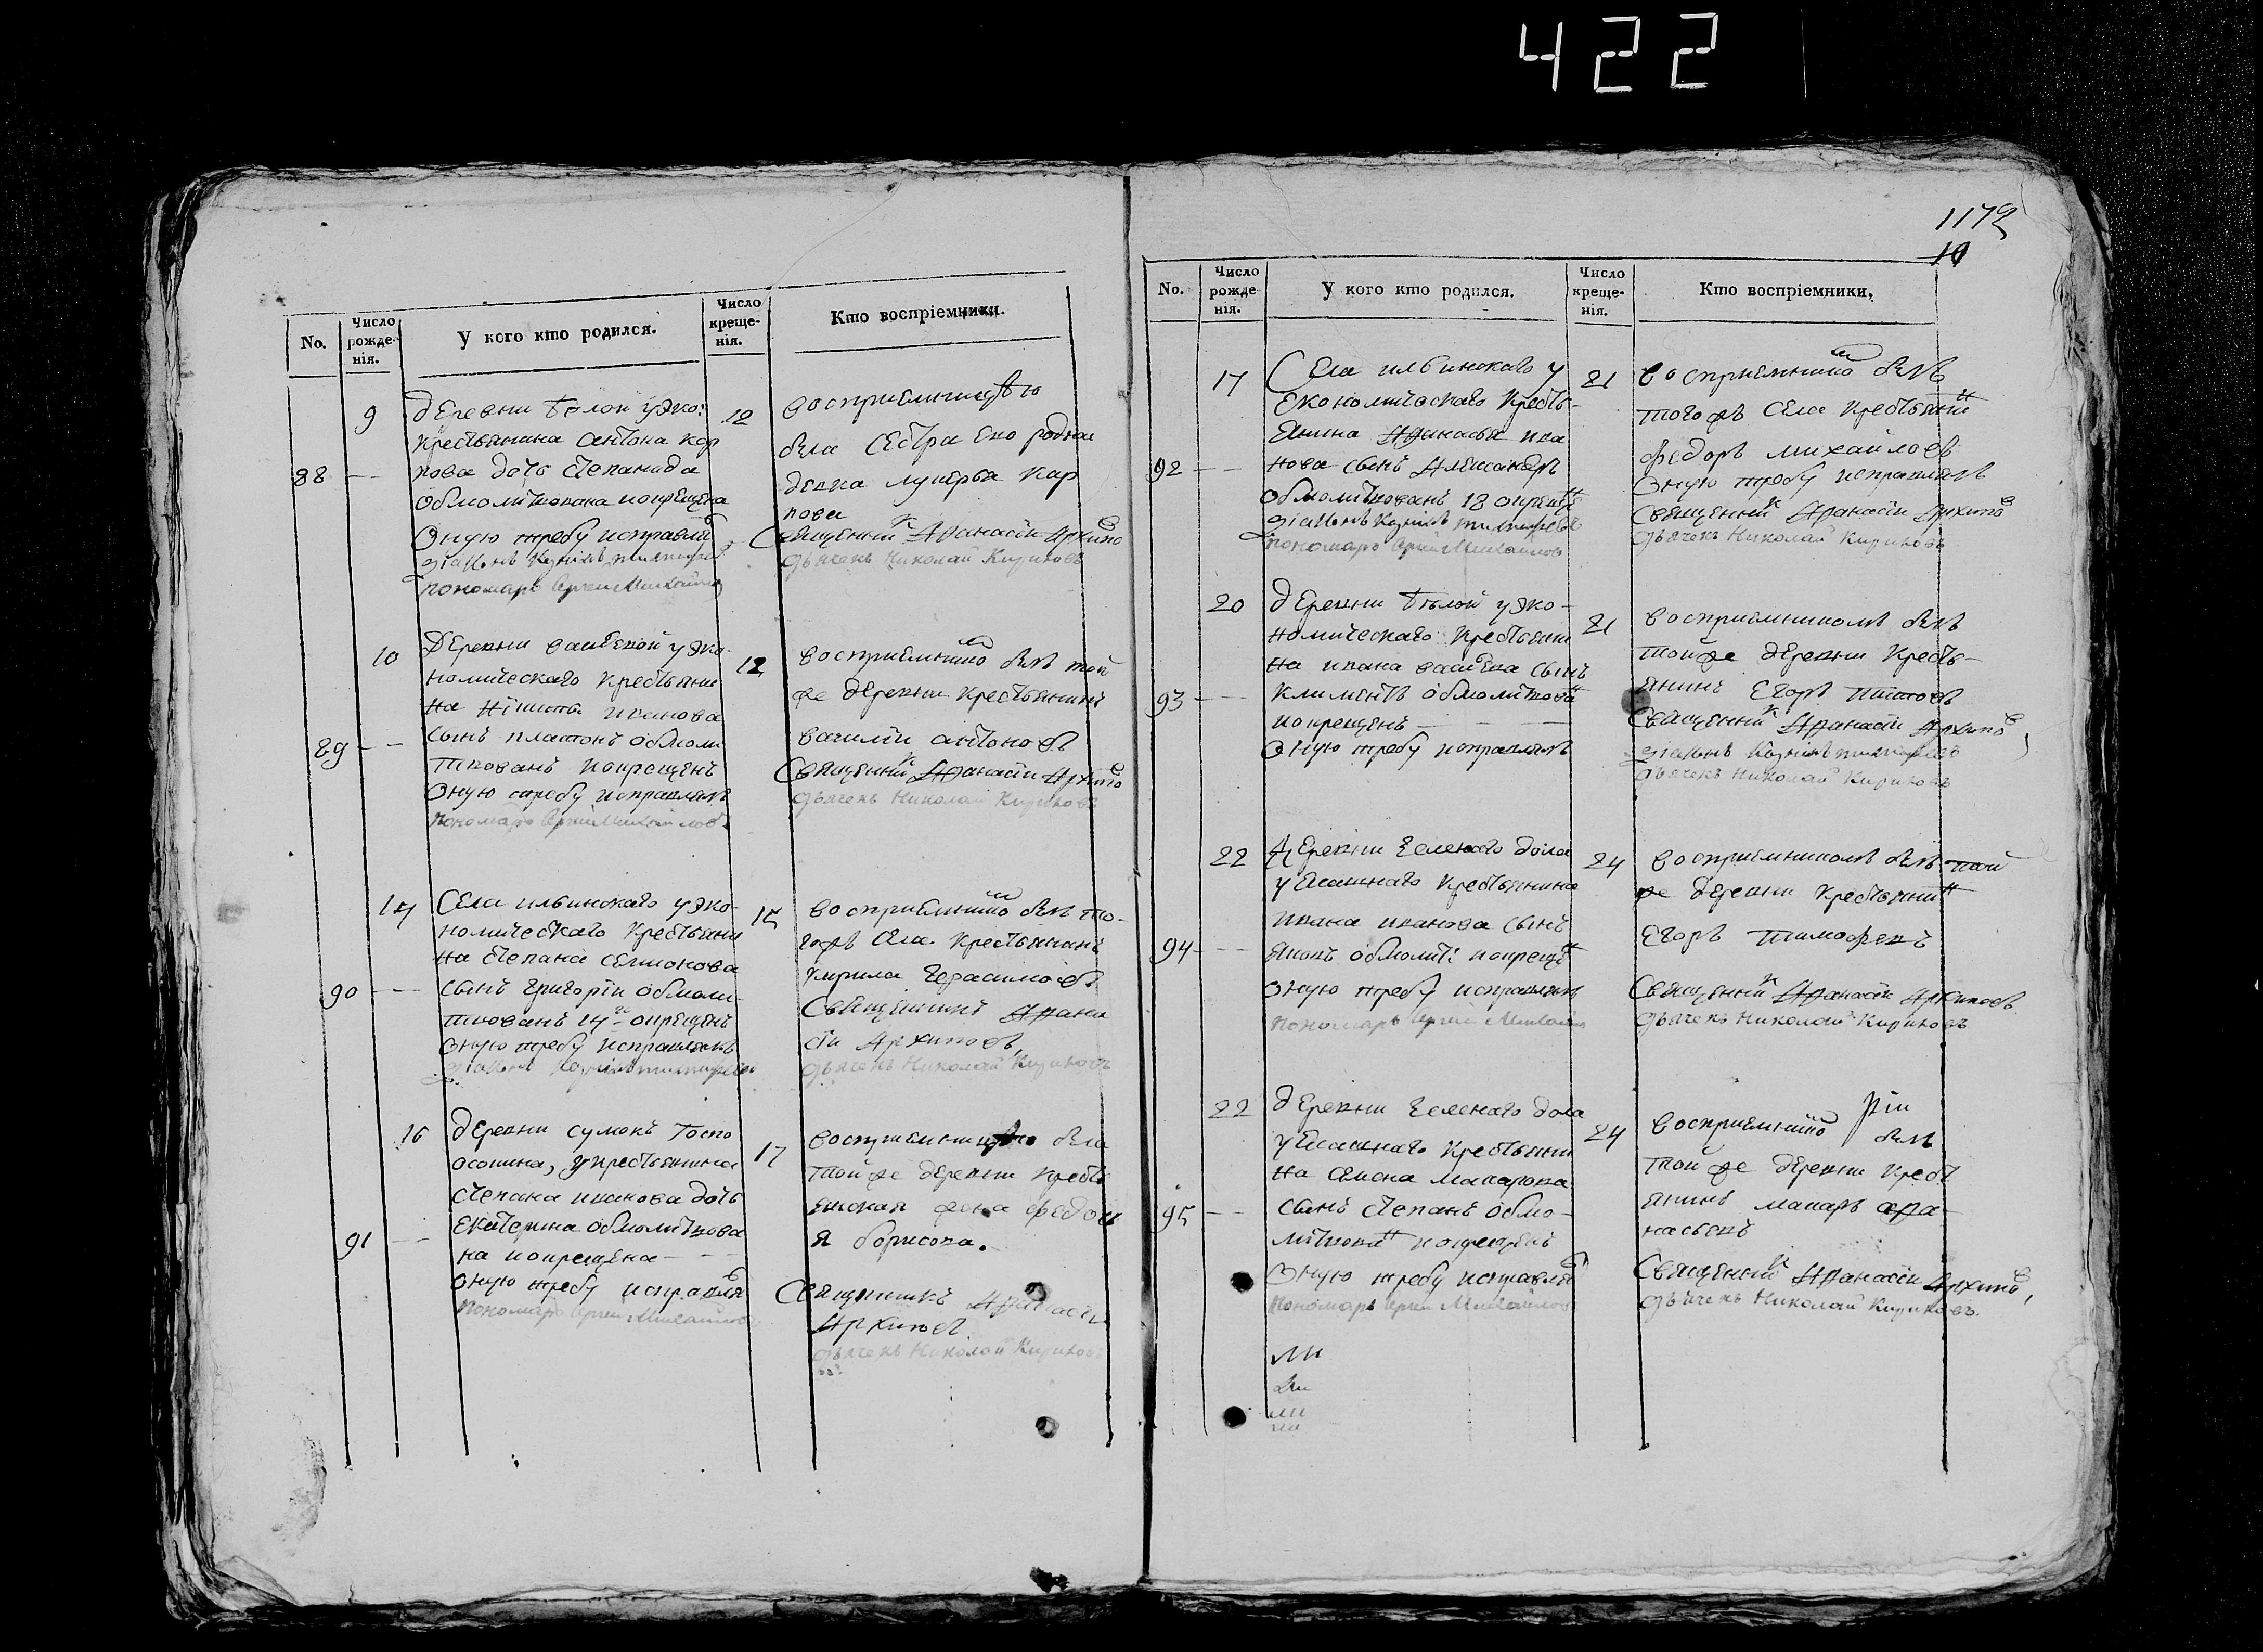 422
1179
10
No.
Число рожде- нія.
У кого кто родился.
Число креще- нія.
Кто воспріемники.
9
деревни белой уэко:
крестьянина антона кар
88
пова дочь степанида
обмолитвована икрещена
Оную требу исправлял
пономарь Сергей Михайлов
12
восприемницею
была сестра ево родная
девка лукерья кар
пова
Священник Афанасий Архипов
дьячекъ Николай Кириковъ
10
Деревни уэко-
номическаго крестьяни
на никиты иванова
89
сынъ платонъ обмоли
твованъ икрещенъ
Оную требу исправлялъ
пономарь Сергей Михайловъ
12
восприемником былъ той
же деревни крестьянинъ
василий антоновъ
Священник Афанасий Архипов
дьячекъ Николай Кириковъ
14
Села ильинскаго уэко-
номическаго крестьяни
на степана семионова
90
сынъ григорій обмоли-
твованъ 14 окрещенъ
Оную требу исправлялъ
15
восприемником былъ то-
гожъ села крестьянинъ
кирила герасимовъ
Священникъ Афана
сій Архиповъ
дьячекъ Николай Кириковъ
16
деревни сумокъ госпо
осокина, у крестьянина
степана иванова дочь
91
екатерина обмолитвова
на икрещена
Оную требу исправля
пономарь Сергей Михайлов
17
восприемницею была
той же деревни кресть
янская жена федось
я борисова.
Священникъ Афанасий
Архипов
дьячекъ Николай Кириковъ
No.
Число рожде- нія.
У кого кто родился.
Число креще- нія.
Кто воспріемники,
17
Села ильинскаго у
економическаго кресть-
янина Афанасья ива
92
нова сынъ Александръ
обмолитвованъ 18 окрещен
пономарь Сергей Михайлов
21
восприемником былъ
тогожъ села крестьянин
федоръ михайловъ
Оную требу исправлялъ
Священник Афанасий Архипов
дьячекъ Николай Кириковъ
20
деревни белой уэко-
номическаго крестьяни
на ивана сынъ
93
климентъ обмолитвован
икрещенъ
Оную требу исправлялъ
21
восприемникомъ былъ
той же деревни кресть-
янинъ Егоръ
Священник Афанасий Архипов
дьячекъ Николай Кириковъ
22
Деревни зеленаго дола
у ясашнаго крестьянина
ивана иванова сынъ
94
яковъ обмолит: икрещен
Оную требу исправлялъ
пономарь Сергей Михайлов
24
восприемникомъ былъ той
же деревни крестьянин
Егоръ тимофеевъ
Священник Афанасий Архиповъ
дьячекъ Николай Кириковъ
22
деревни зеленаго дола
у ясашнаго крестьяни
на семена макарова
95
сынъ степанъ обмо-
литвован икрещенъ
Оную требу исправлял
пономарь Сергей Михайлов
24
восприемником былъ
той же деревни крест
янинъ макаръ афа-
насьевъ
Священник Афанасий Архипов
дьячекъ Николай Кириковъ.